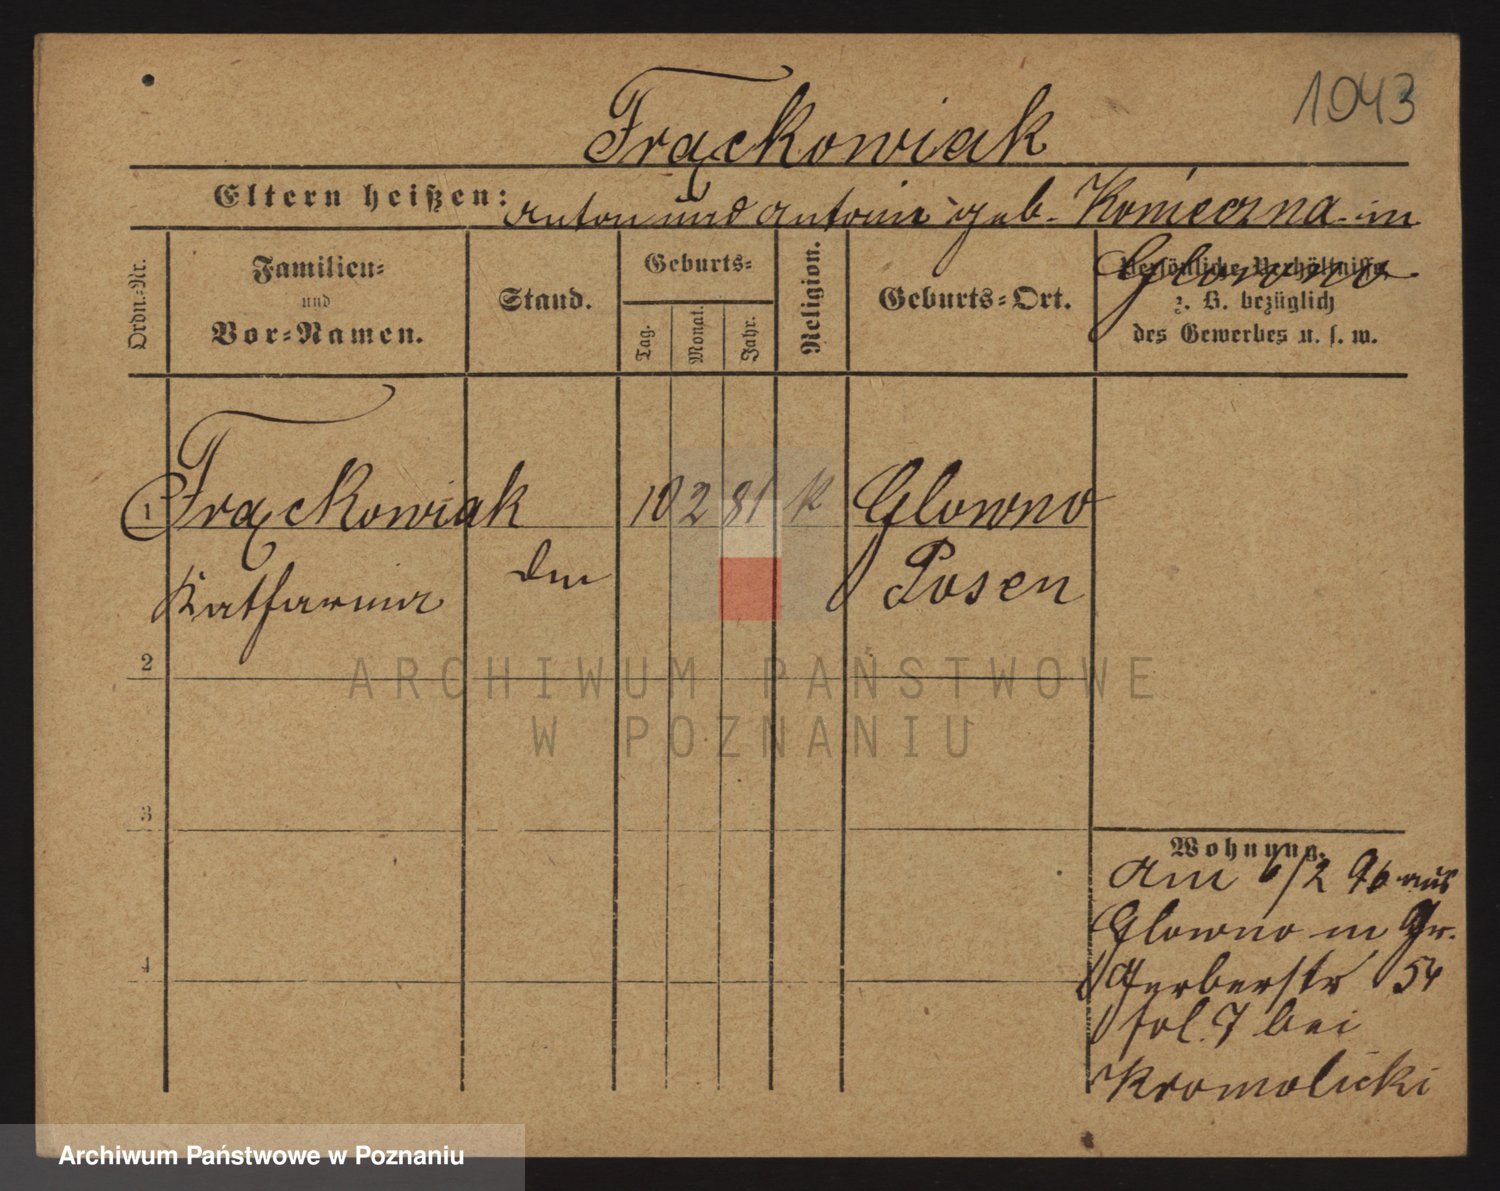 1043
Frąckowiak
Eltern heißen: Anton und Antonie geb. Konieczna in
Glowno
Ordn.-Nr.
Familien-
und
Vor-Namen.
Stand.
Geburts-
Tag.
Monat.
Jahr.
Religion.
Geburts-Ort.
Persönliche Verhältnisse
z. B. bezüglich
des Gewerbes u. s. w.
1 Frąckowiak 10 2 81 k Glowno
Katharina Posen
2
3
4
Wohnung.
Am 6/2 96 aus
Glowno in Gr.
Gerberstr 54
fol. 7 bei
Kromolicki
ARCHIWUM PAŃSTWOWE
W POZNANIU
Archiwum Państwowe w Poznaniu